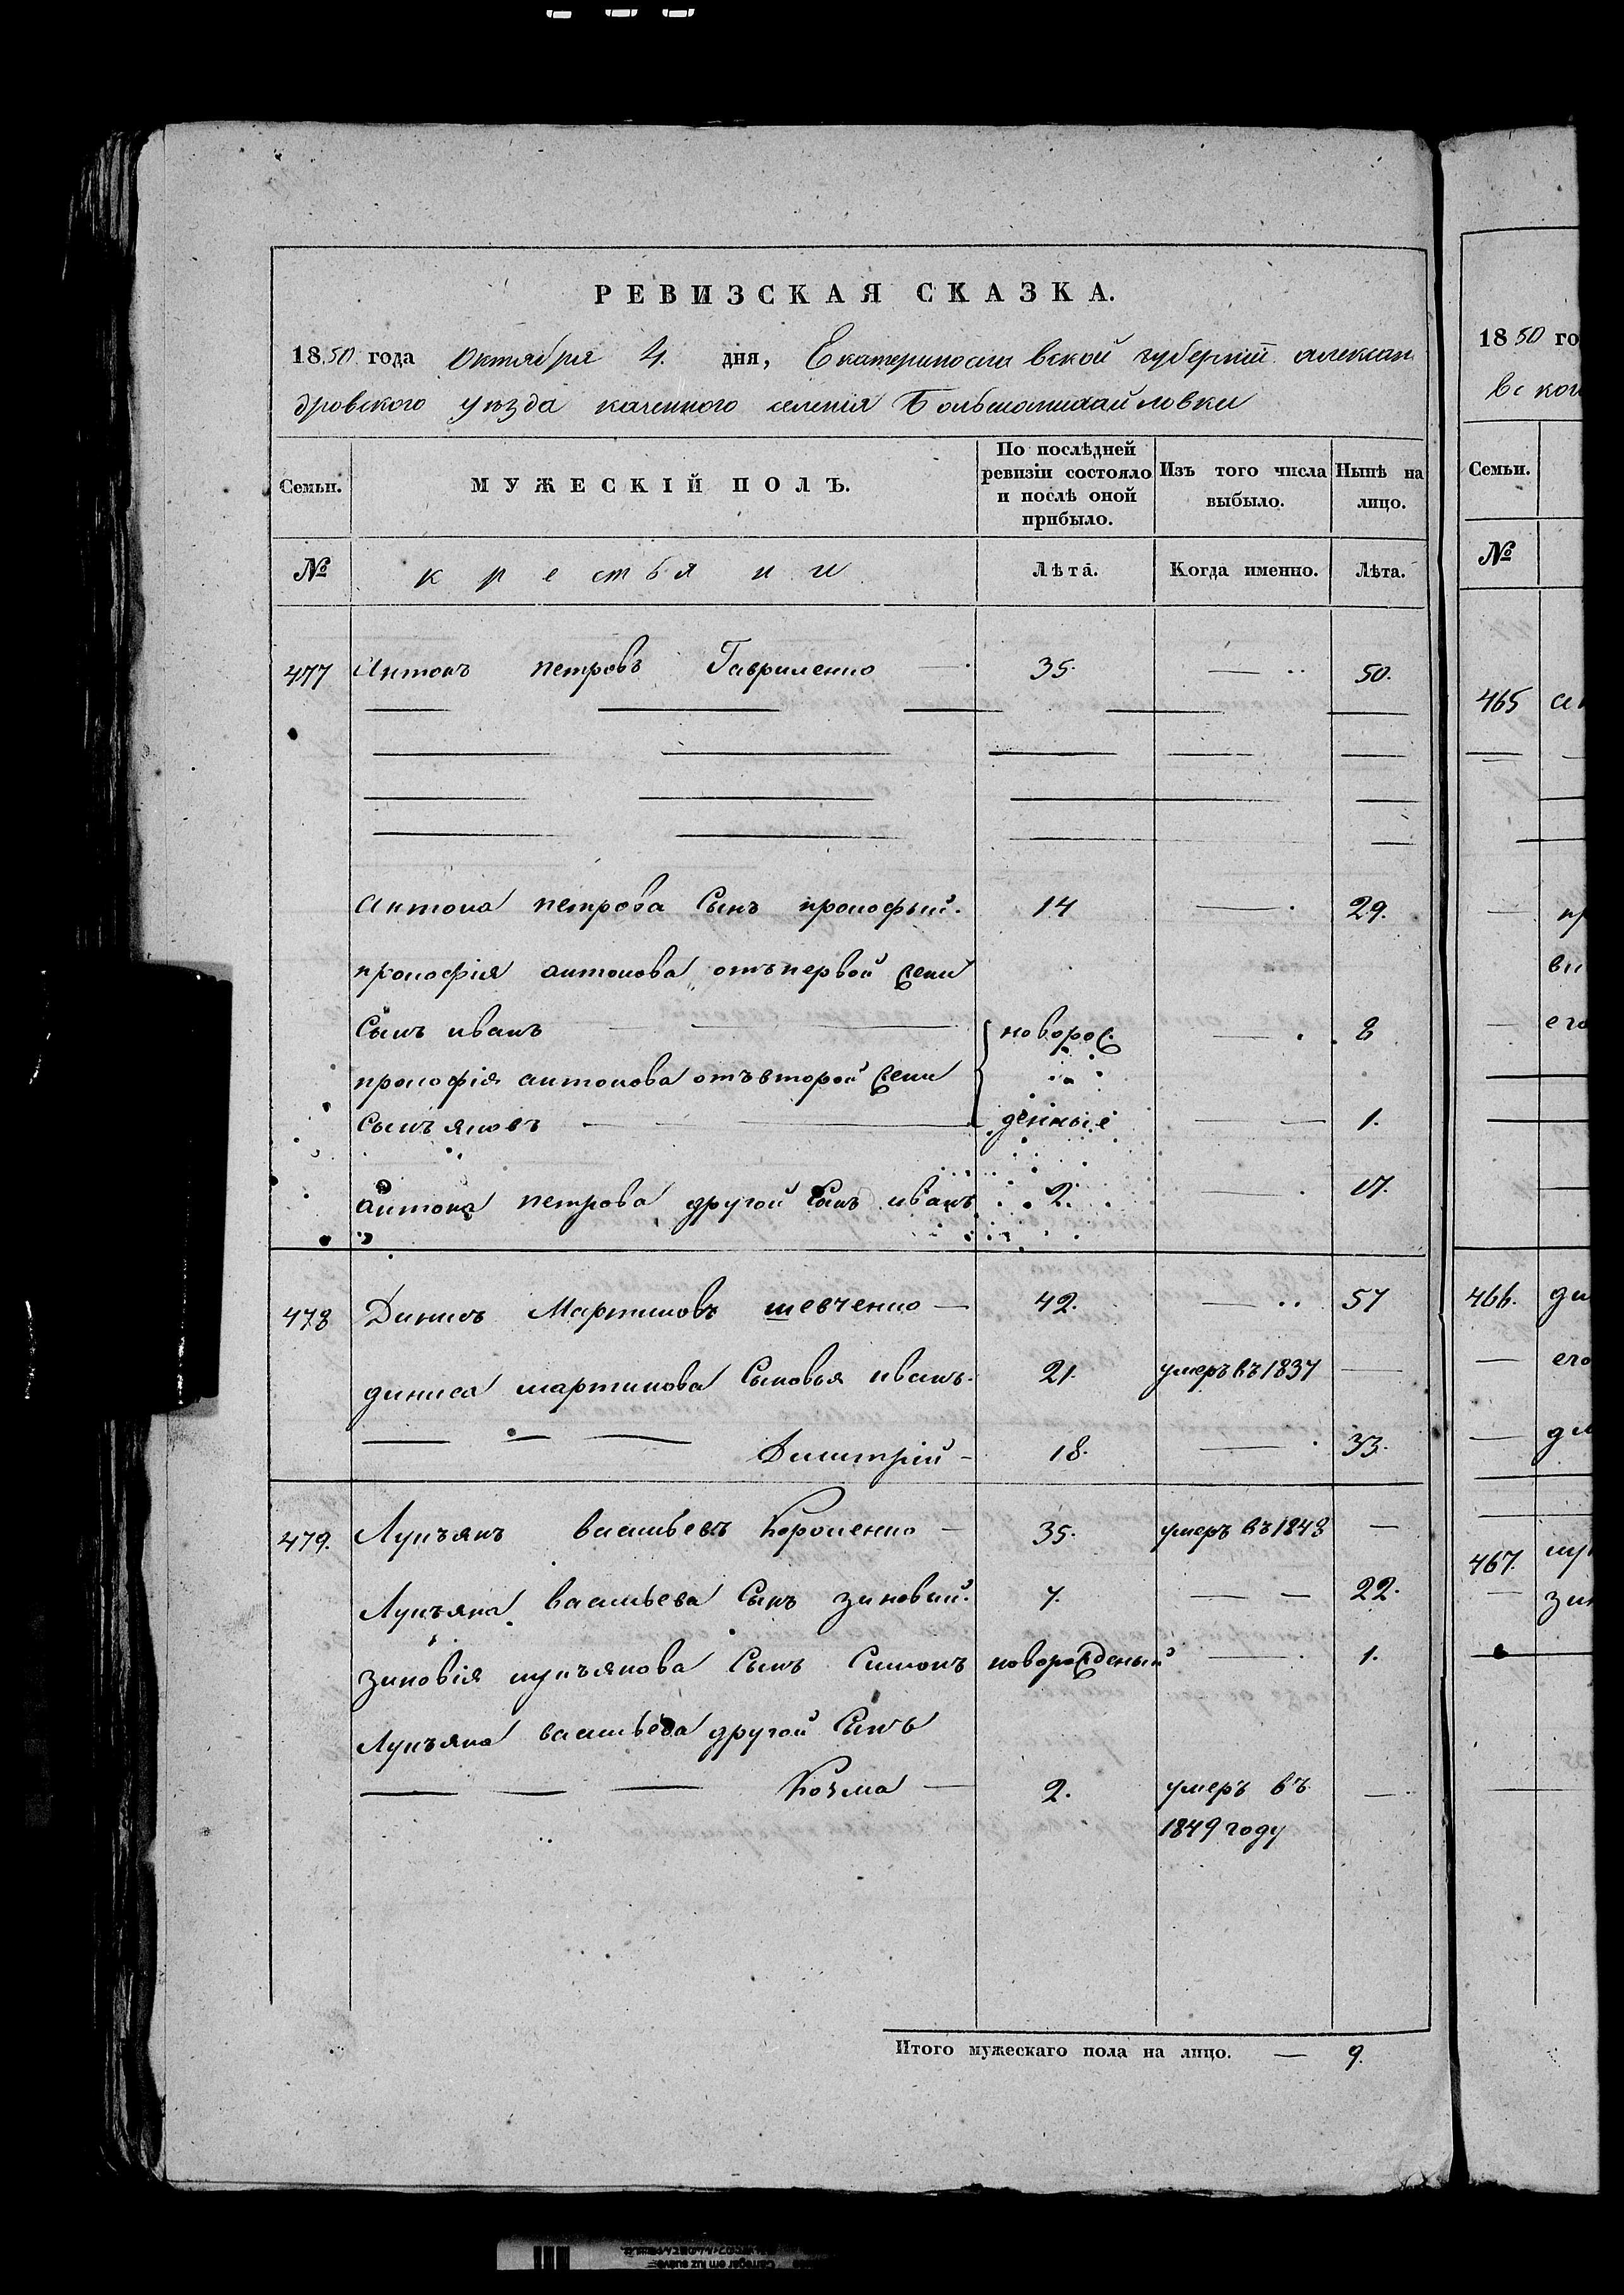 РЕВИЗСКАЯ СКАЗКА.
1850 года Октября 4. дня, Екатеринославской губерніи Алексан
дровского уезда казенного селенія Большомихайловки
Семьи. МУЖЕСКІЙ ПОЛЪ. По послѣдней ревизіи состояло и послѣ оной прибыло. Изъ того числа выбыло. Нынѣ на лицо.
№ крестьяни Лѣта. Когда именно. Лѣта.
477 Антонъ петровъ Гавриленко — 35. — 50.
Антона петрова Сынъ прокофый. 14 — 29.
прокофія антонова отъ первой жени
Сынъ иванъ — новорож 8
прокофія антонова отъ второй жени
Сынъ яковъ — денные — 1.
антона петрова другой Сынъ иванъ 2. — 17.
478 Динисъ Мартиновъ шевченко — 42. — 57
диниса мартинова Сыновья иванъ. 21. умеръ въ 1837 —
Димитрій — 18. — 33.
479. Лукъянъ васильевъ Короленко — 35. умеръ въ 1848 —
Лукъяна васильева Сынъ зиновий. 7. — — 22.
зиновія лукъянова Сынъ Симонъ новорожденый — 1.
Лукъяна васильева другой Сынъ
Козма — 2. умеръ въ —
1849 году
Итого мужескаго пола на лицо. — 9.
1850 го
вс кои
Семьи.
№
465
466.
467.